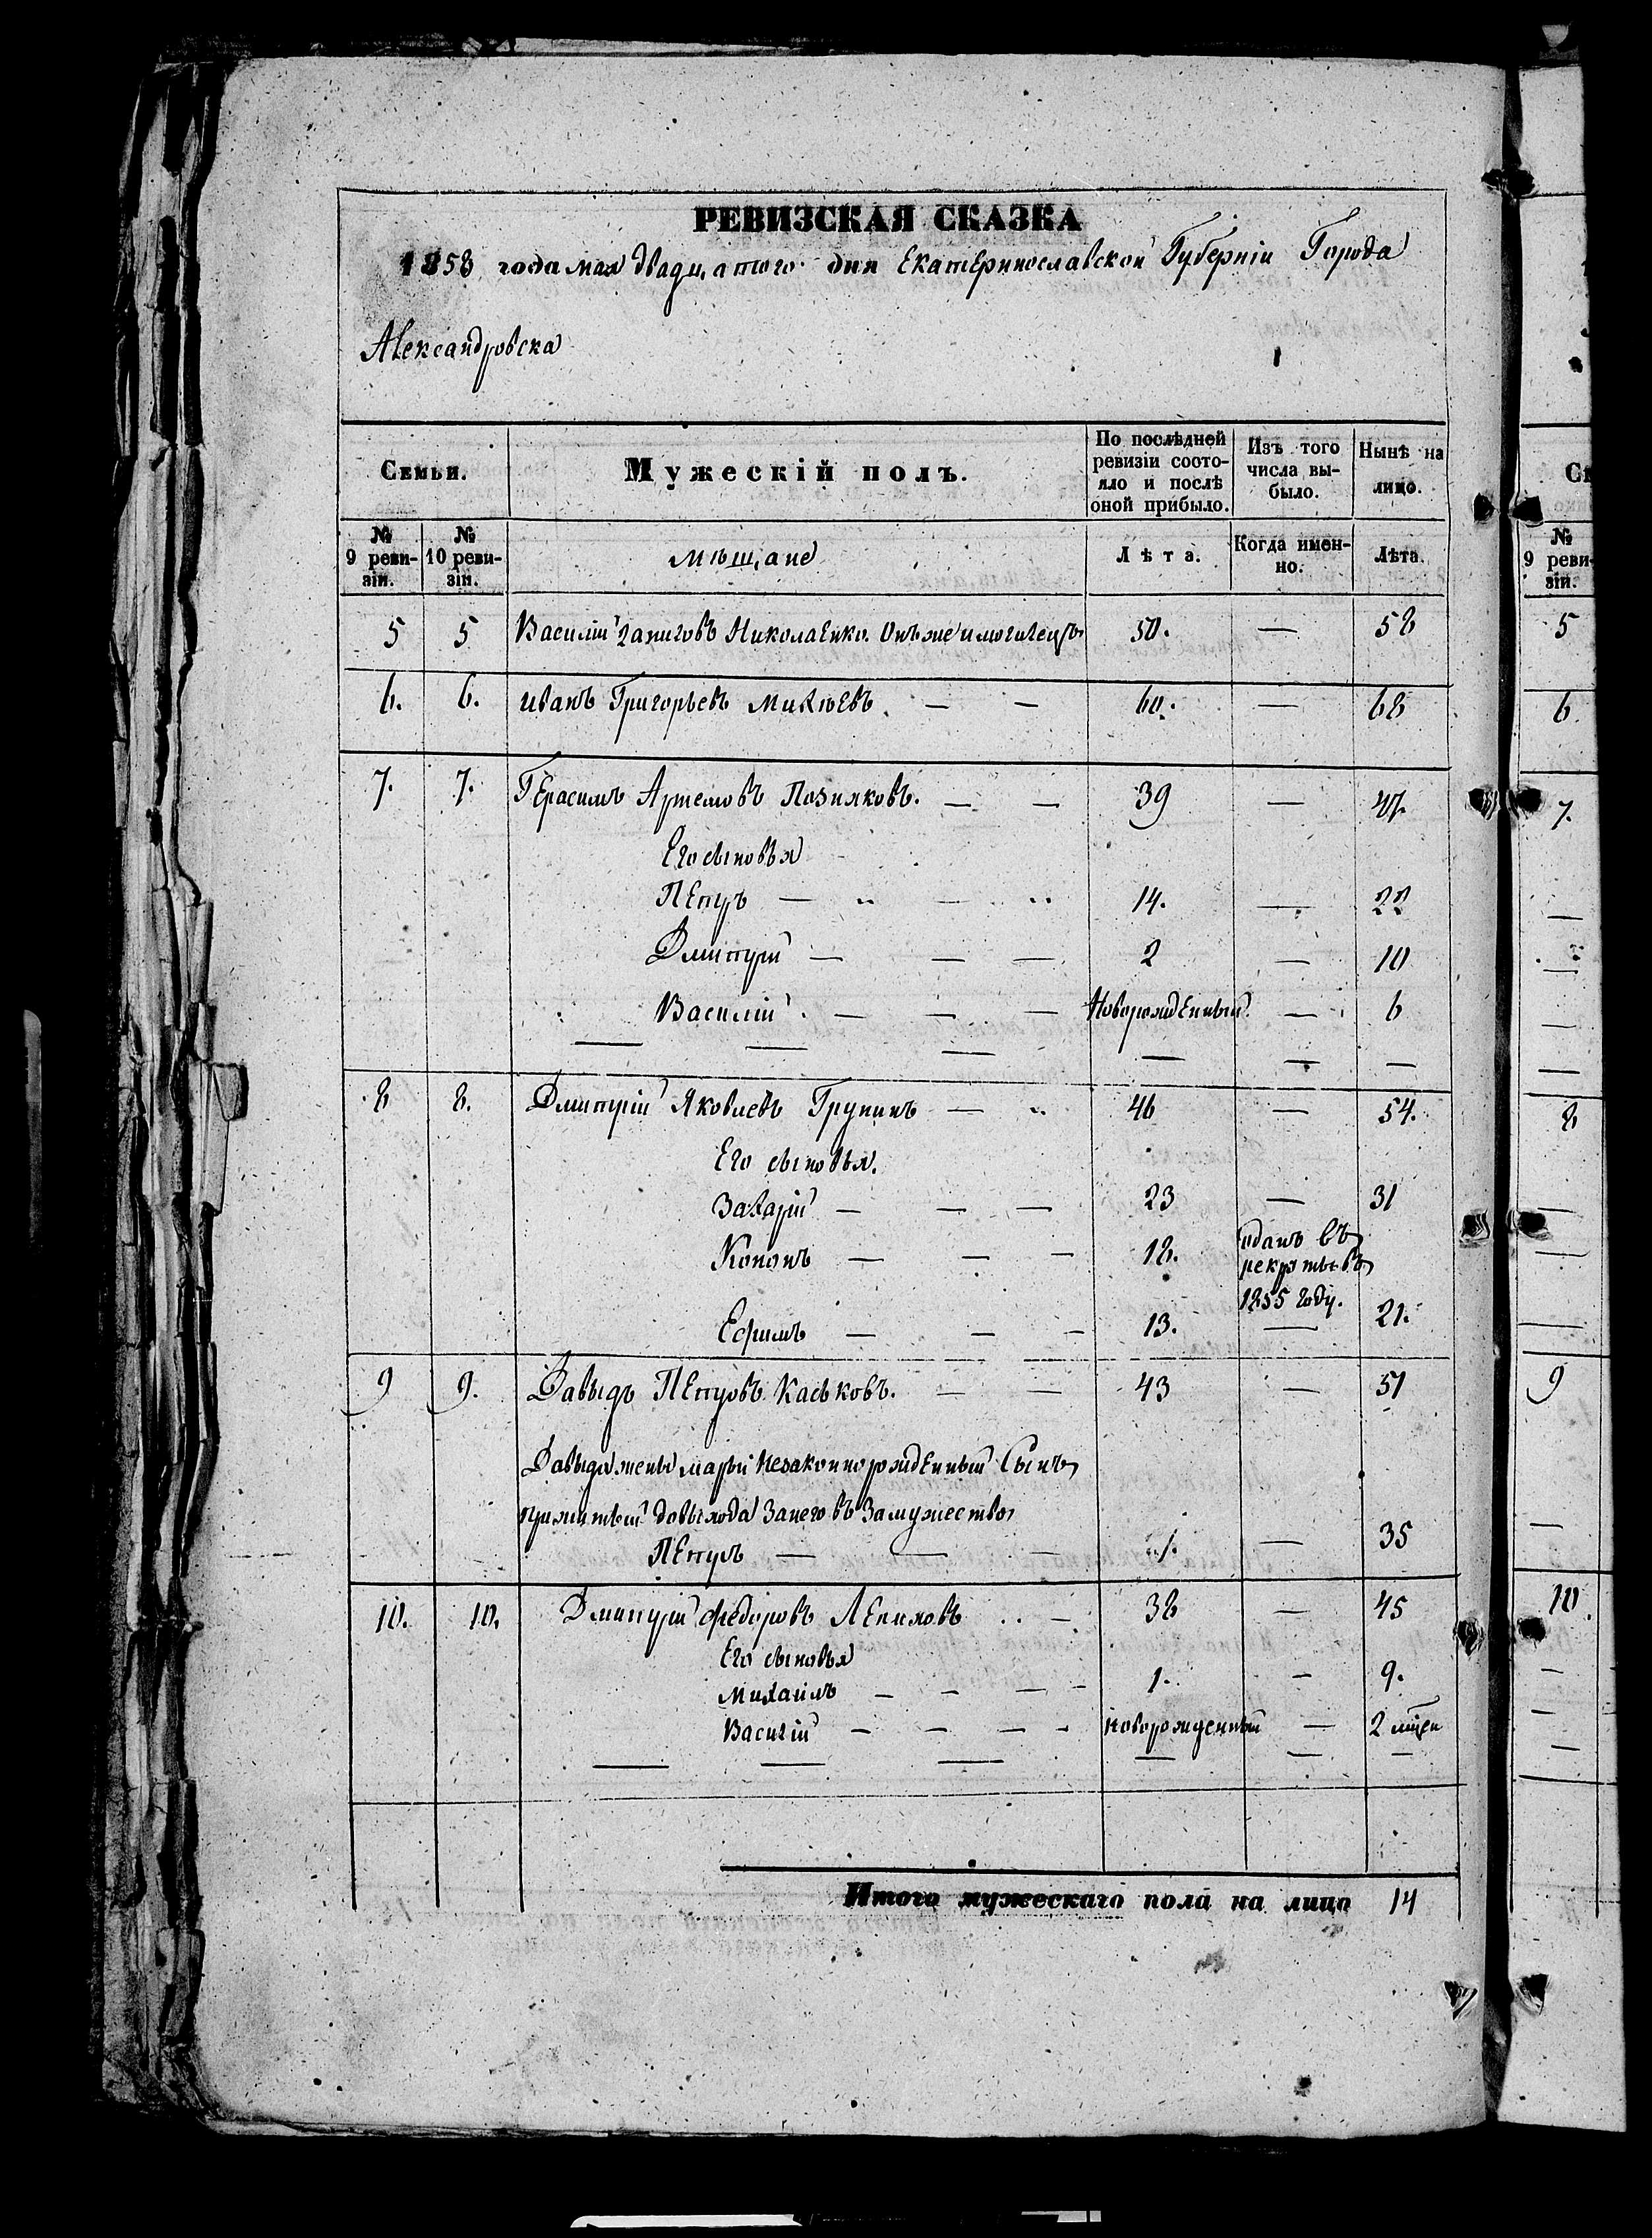 РЕВИЗСКАЯ СКАЗКА
1858 года мая двадцатого дня Екатеринославской Губерніи Города
Александровска
Семьи. Мужескій полъ. По послѣдней ревизіи состояло и послѣ оной прибыло. Изъ того числа выбыло. Нынѣ на лицо.
№ 9 ревизіи. № 10 ревизіи. мѣщане Лѣта. Когда именно. Лѣта.
5 5 Василій Николаенко. Онъ же 50. — 58
6. 6. Иванъ Григорьевъ Михѣевъ — — 60. — 68
7. 7. Герасимъ Артемовъ Позняковъ. — — 39 — 47
Его сыновья
Петръ — — 14. — 22
Дмитрій — — — 2 — 10
Василій — — — Новорожденный — 6
— — — — — —
8 8. Дмитрій Яковлевъ Грунинъ — 46 — 54.
Его сыновья.
Захарій — — — 23 — 31
Кононъ — — — 18. оданъ въ
рекруты въ
1855 году.
Ефимъ — — — 13. — 21.
9 9. Давыдъ Петровъ Каськовъ. — — 43 — 51
Давыда жены Марьи незаконнорожденный Сынъ
прижитый довыхода занего въ замужество
Петръ — — — — 35
10. 10. Дмитрій Федоровъ Лепиховъ — 38 — 45
Его сыновья
Михаилъ — — — — 1. — 9.
Василій — — — — новорожденный — 2
— — — — — —
Итого мужескаго пола на лицо 14
Се
№ 9 ревизіи.
5
6
7.
8
9
10